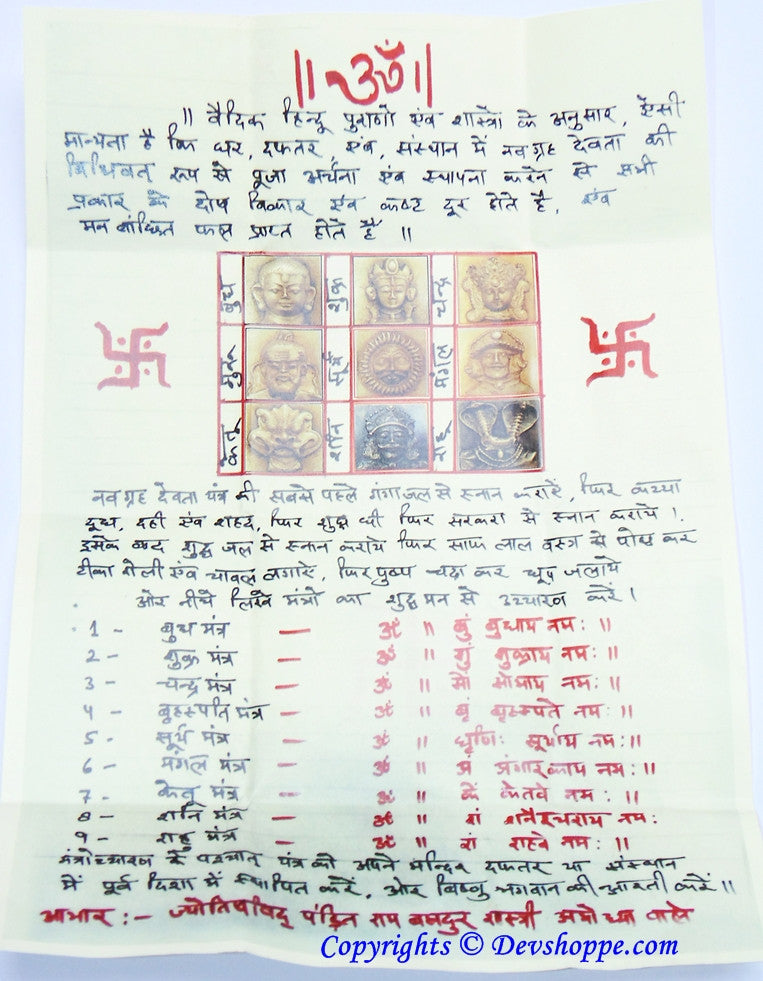 ॥ ॐ ॥
॥ वैदिक हिन्दू पुराणो एंव शास्त्रों के अनुसार, ऐंसी
मान्यता है कि घर, दफतर, एंव, संस्थान में नव ग्रह देवता की
विधिवत रूप से पूजा अर्चना एंव स्थापना करने से सभी
प्रकार के दोष विकार एंव कष्ट दूर होते है, एंव
मन वांछित फल प्राप्त होते है ॥
बुध शुक्र चन्द्र
गुरू सूर्य मंगल
केतु शनि राहू
नव ग्रह देवता यंत्र को सबसे पहले गंगाजल से स्नान कराऐं, फिर कच्चा
दूध, दही एंव शहद, फिर शुद्ध घी फिर सक्करा से स्नान कराये।.
इसके बाद शुद्ध जल से स्नान कराये फिर साफ लाल वस्त्र से पोंछ कर
टीका रोली एंव चावल लगाऐं, फिर पुष्प चढ़ा कर धूप जलाये
ओर नीचे लिखे मंत्रो का शुद्ध मन से उच्चारण करें।
1 - बुध मंत्र — ॐ ॥ बुं बुधाय नमः ॥
2 - शुक्र मंत्र — ॐ ॥ शुं शुक्राय नमः ॥
3 - चन्द्र मंत्र — ॐ ॥ सों सोमाय नमः ॥
4 - बृहस्पति मंत्र — ॐ ॥ बृं बृहस्पते नमः ॥
5 - सूर्य मंत्र — ॐ ॥ घृणिः सूर्याय नमः ॥
6 - मंगल मंत्र — ॐ ॥ अं अंगारकाय नमः ॥
7 - केतु मंत्र — ॐ ॥ कें केतवे नमः ॥
8 - शनि मंत्र — ॐ ॥ शं शनैश्चराय नमः
9 - राहु मंत्र — ॐ ॥ रां राहवे नमः ॥
मंत्रोच्चारण के पश्चात् यंत्र को अपने मन्दिर दफतर या संस्थान
में पूर्व दिशा में स्थापित करें, ओर विष्णु भगवान की आरती करें ॥
आभार :- ज्योतिषविद् पंडित राम बहादुर शास्त्री अयोध्या वाले
Copyrights © Devshoppe.com